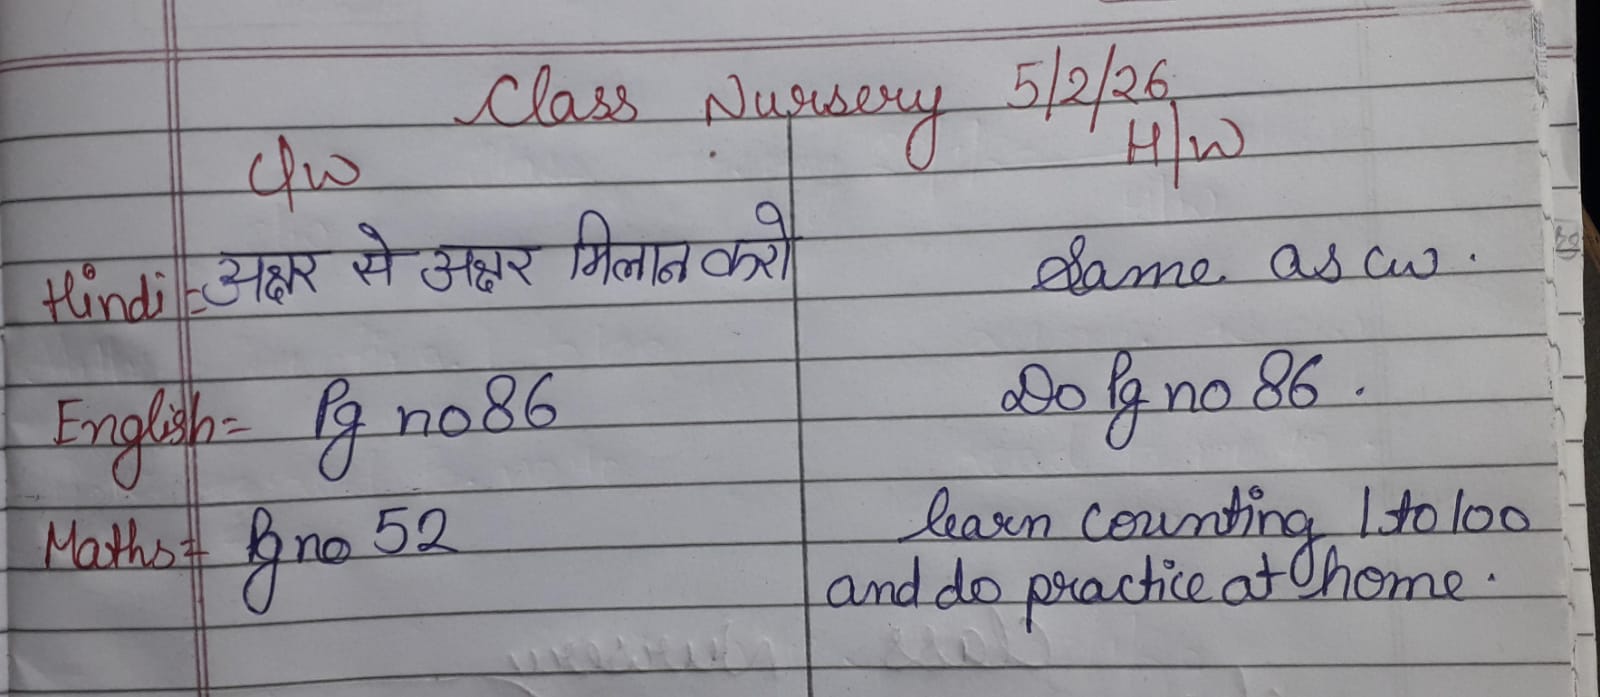 Class Nursery 5/2/26
C/W H/W
Hindi = अक्षर से अक्षर मिलान करो Same as cw.
English = Pg no 86 Do Pg no 86.
Maths = Pg no 52 learn counting 1 to 100
and do practice at home.